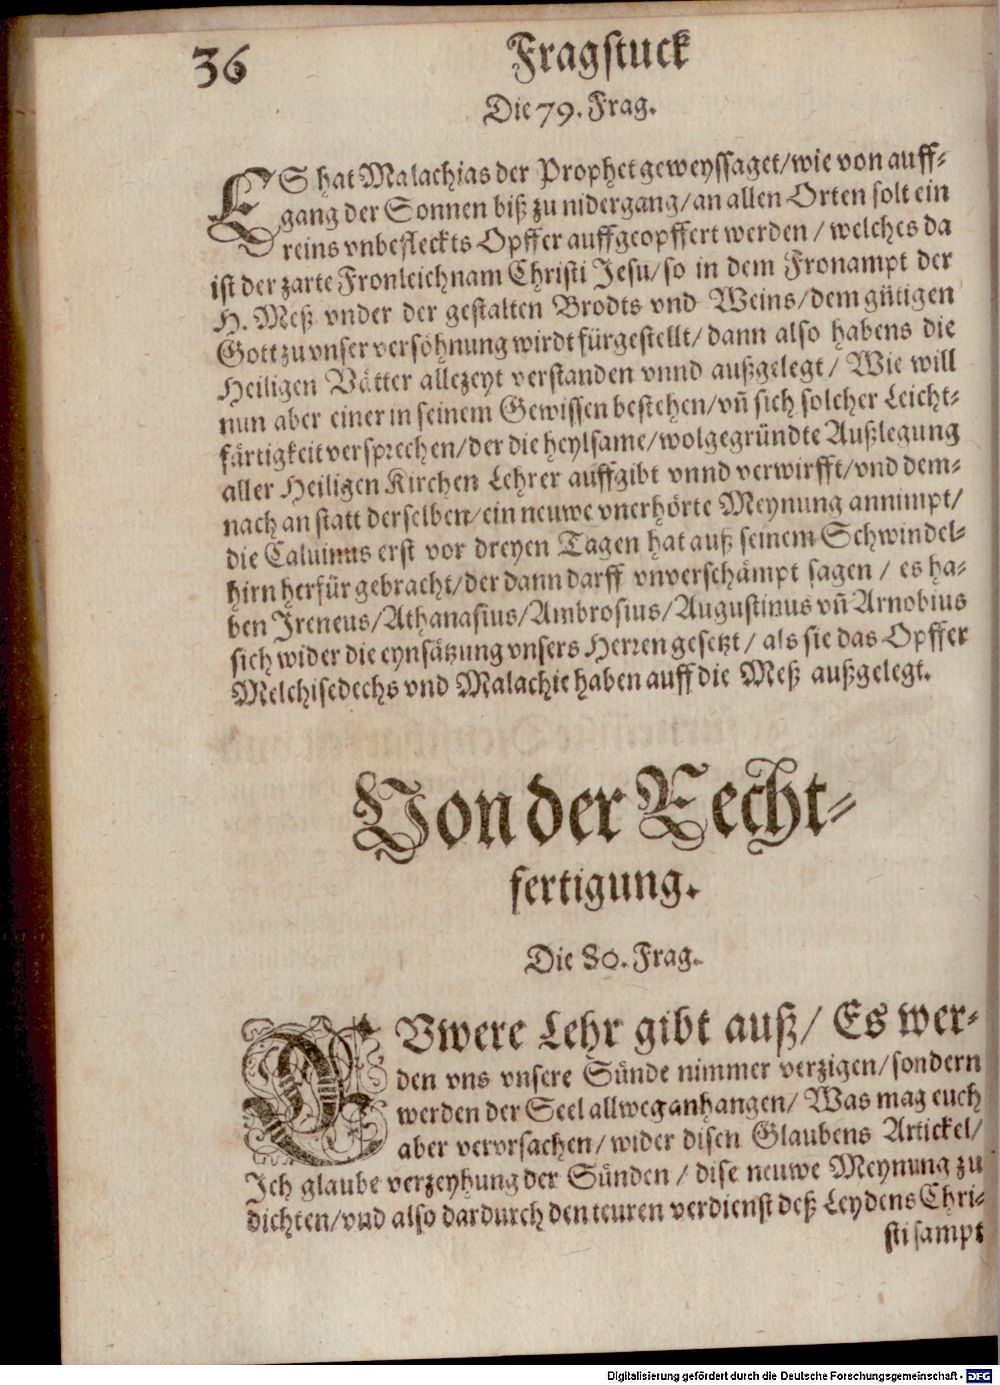 36 Fragstuck
Die 79. Frag.
ES hat Malachias der Prophet geweyssaget/wie von auff-
gang der Sonnen biß zu nidergang/an allen Orten solt ein
reins vnbefleckts Opffer auffgeopffert werden / welches da
ist der zarte Fronleichnam Christi Jesu/so in dem Fronampt der
H. Meß vnder der gestalten Brodts vnd Weins/dem gütigen
Gott zu vnser versöhnung wirdt fürgestellt/ dann also habens die
Heiligen Vätter allezeyt verstanden vnnd außgelegt / Wie will
nun aber einer in seinem Gewissen bestehen/vñ sich solcher Leicht-
färtigkeit versprechen/der die heylsame/wolgegründte Außlegung
aller Heiligen Kirchen Lehrer auffgibt vnnd verwirfft/vnd dem-
nach an statt derselben/ein neuwe vnerhörte Meynung annimpt/
die Caluinus erst vor dreyen Tagen hat auß seinem Schwindel-
hirn herfür gebracht/der dann darff vnverschämpt sagen / es ha-
ben Jreneus/Athanasius/Ambrosius/Augustinus vñ Arnobius
sich wider die eynsätzung vnsers Herren gesetzt / als sie das Opffer
Melchisedechs vnd Malachie haben auff die Meß außgelegt.
Von der Recht-
fertigung.
Die 80. Frag.
EVwere Lehr gibt auß/ Es wer-
den vns vnsere Sünde nimmer verzigen/sondern
werden der Seel allweg anhangen/ Was mag euch
aber vervrsachen/wider disen Glaubens Artickel/
Jch glaube verzeyhung der Sünden / dise neuwe Meynung zu
dichten/vnd also dardurch den teuren verdienst deß Leydens Chri-
sti sampt
Digitalisierung gefördert durch die Deutsche Forschungsgemeinschaft - DFG